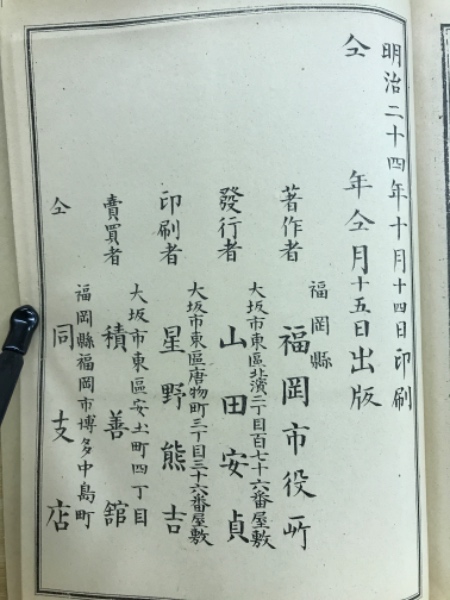 明治二十四年十月十四日印刷
仝年仝月十五日出版
福岡縣
著作者 福岡市役所
大坂市東區北濱二丁目百七十六番屋敷
發行者 山田安貞
大坂市東區唐物町三丁目三十六番屋敷
印刷者 星野熊吉
大坂市東區安土町四丁目
賣買者 積善舘
福岡縣福岡市博多中島町
仝 同支店